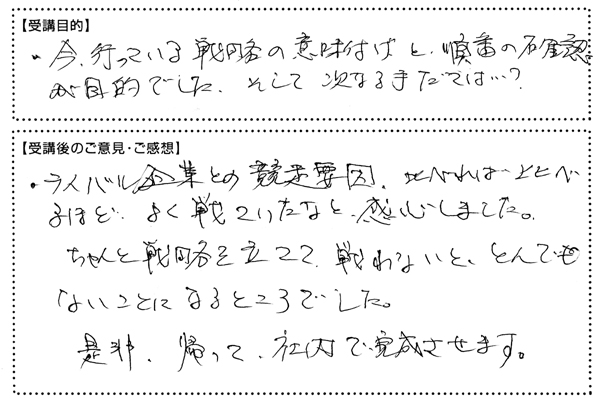 【受講目的】
・今、行っている戦略の意味付けと、順番の確認
が目的でした。そして次なる手だては…?
【受講後のご意見・ご感想】
・ライバル企業との競走要因、比べれば比べ
るほど、よく戦っていたなと、感心しました。
ちゃんと戦略を立てて、戦わないと、とんでも
ないことになるところでした。
是非、帰って、社内で完成させます。